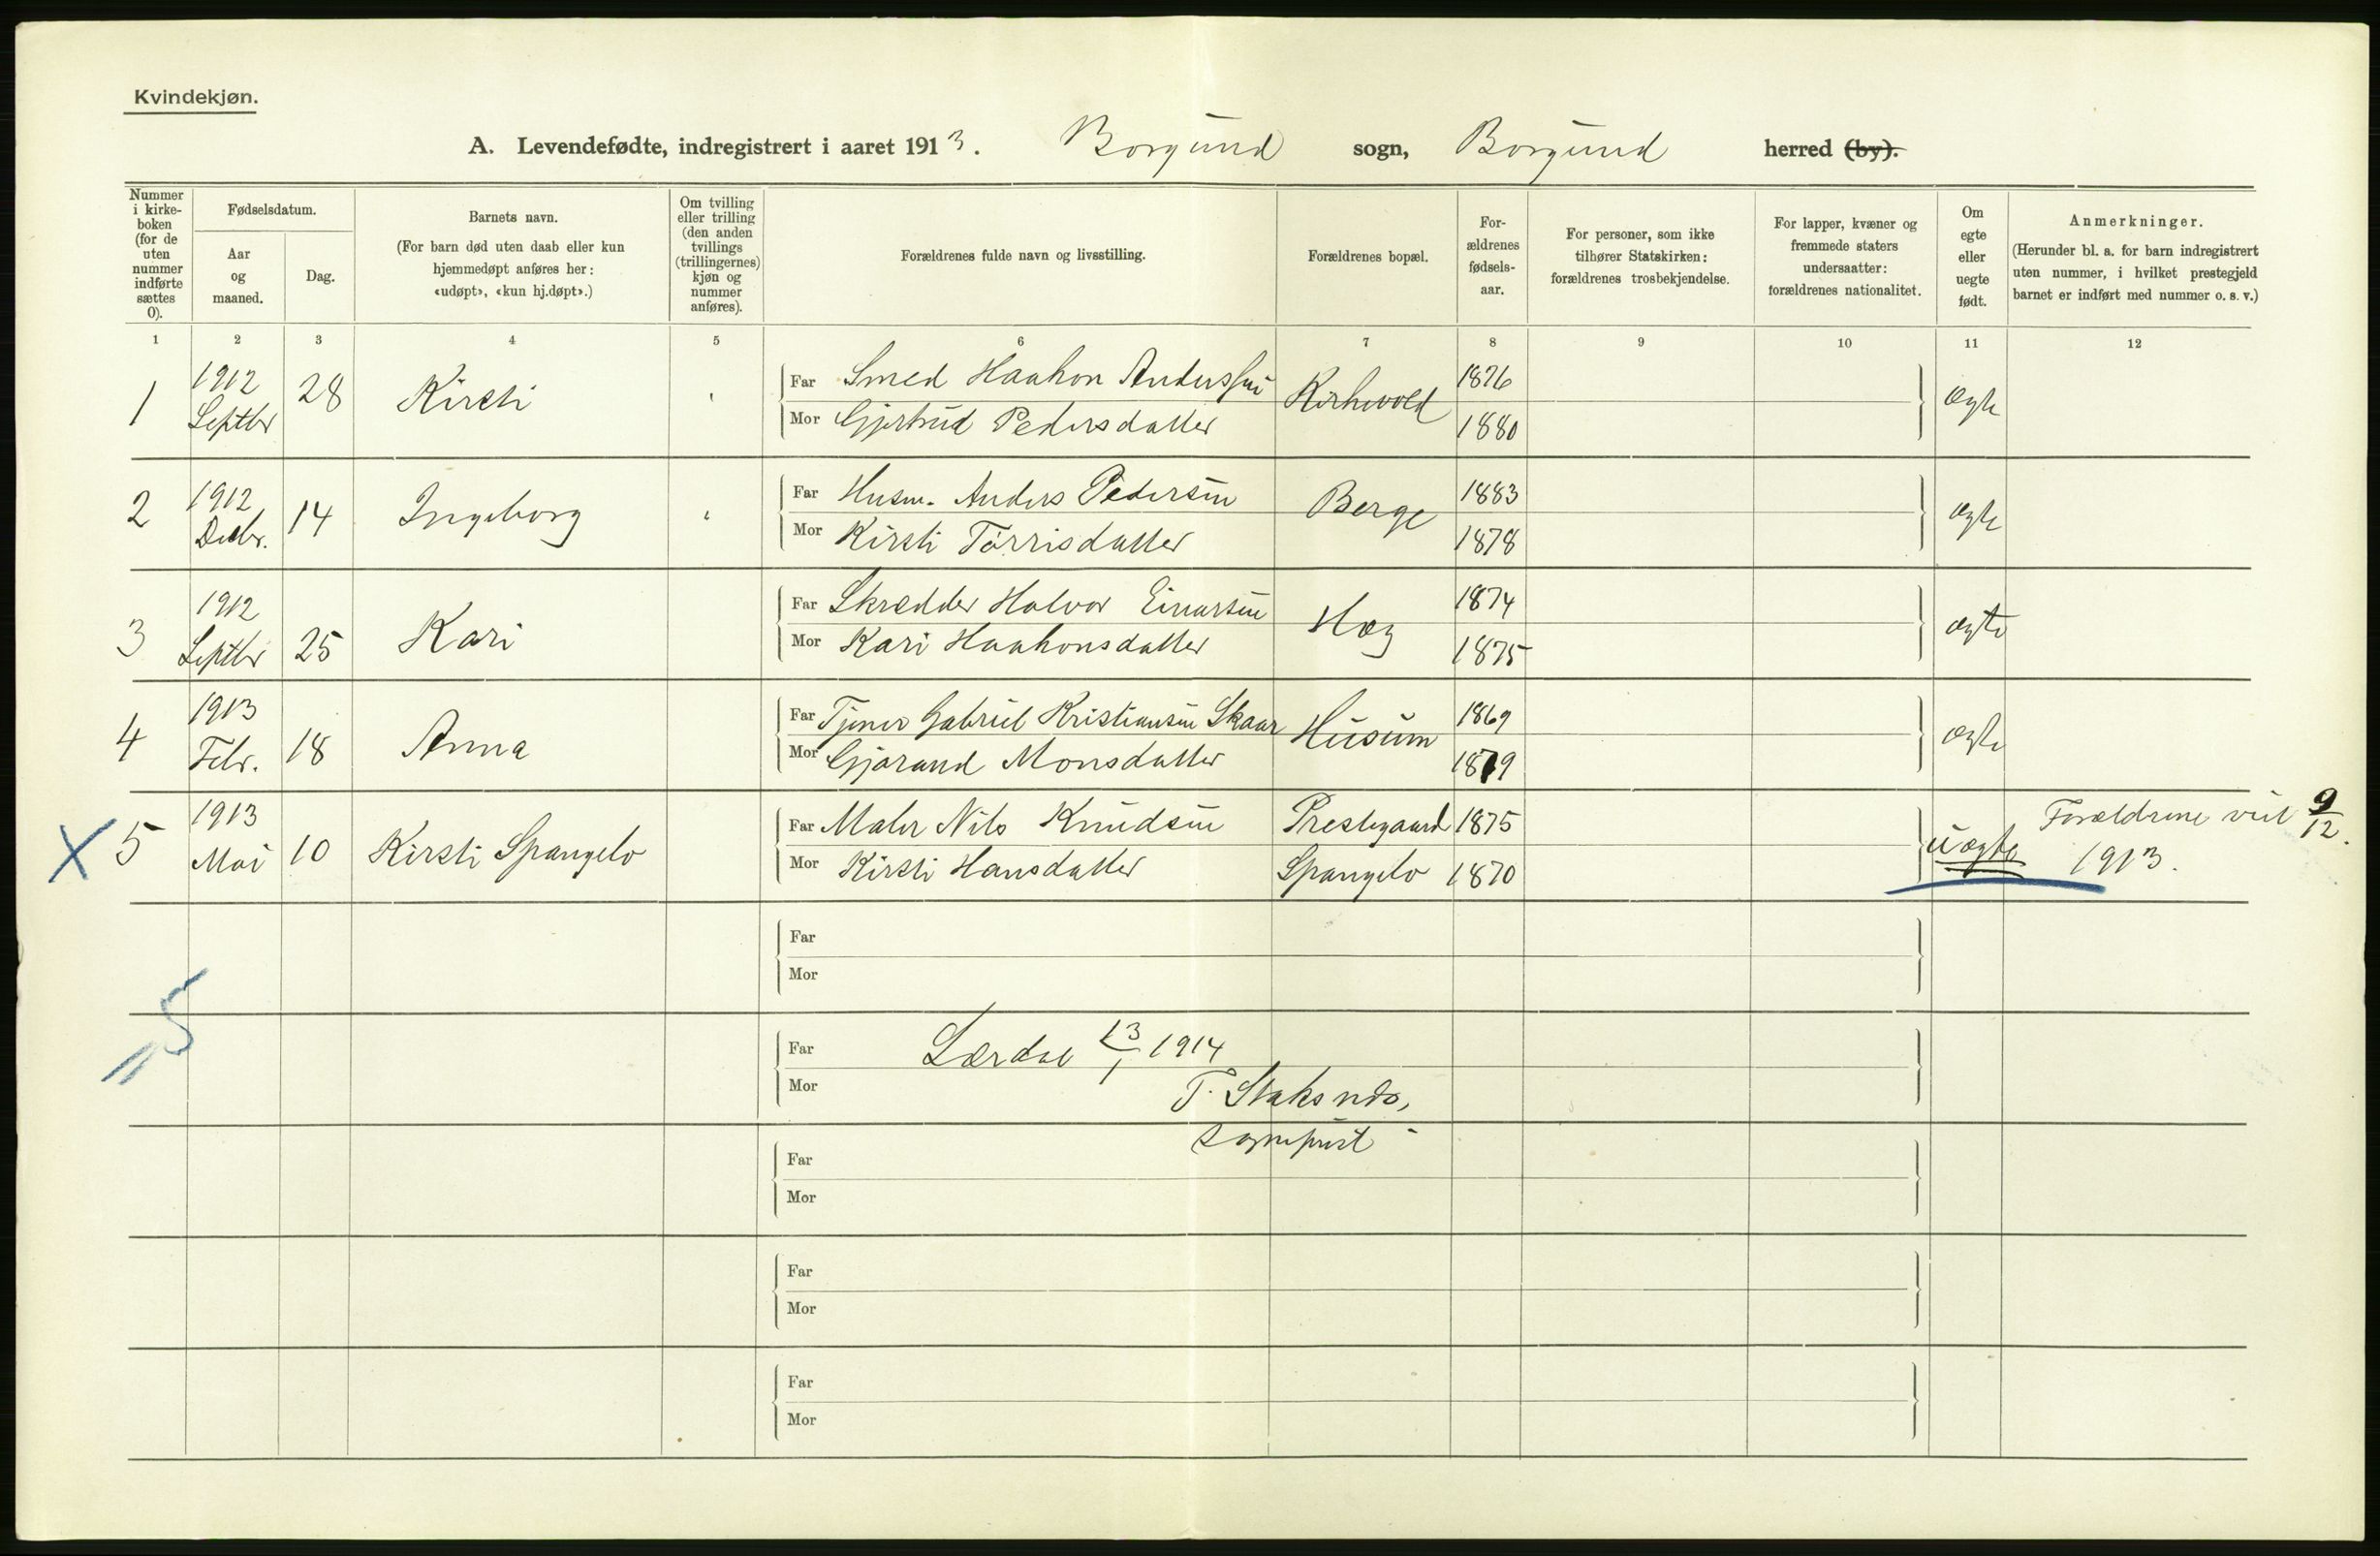 Kvindekjøn.
A. Levendefødte, indregistrert i aaret 1913. Borgund sogn, Borgund herred (by).
Nummer i kirke-boken (for de uten nummer indførte sættes 0).
Fødselsdatum.
Aar og maaned.
Dag.
Barnets navn.
(For barn død uten daab eller kun hjemmedøpt anføres her: «udøpt», «kun hj.døpt».)
Om tvilling eller trilling (den anden tvillings (trillingernes) kjøn og nummer anføres).
Forældrenes fulde navn og livsstilling.
Forældrenes bopæl.
For-ældrenes fødsels-aar.
For personer, som ikke tilhører Statskirken: forældrenes trosbekjendelse.
For lapper, kvæner og fremmede staters undersaatter: forældrenes nationalitet.
Om egte eller uegte født.
Anmerkninger.
(Herunder bl. a. for barn indregistrert uten nummer, i hvilket prestegjeld barnet er indført med nummer o. s. v.)
1 2 3 4 5 6 7 8 9 10 11 12
1 1912 Septbr 28 Kirsti
Far Smed Haakon Anderssen Kirkevold 1876 ægte
Mor Gjertrud Pedersdatter 1880
2 1912 Decbr. 14 Ingeborg
Far Husm. Anders Pedersen Berge 1883 ægte
Mor Kirsti Tørrisdatter 1878
3 1912 Septbr 25 Kari
Far Skrædder Halvor Einarsen Hæg 1874 ægte
Mor Kari Haakonsdatter 1875
4 1913 Febr. 18 Anna
Far Tjener Gabriel Kristiansen Skaar Husum 1869 ægte
Mor Gjørand Monsdatter 1879
X 5 1913 Mai 10 Kirsti Spangelo
Far Maler Nils Knudsen Prestegaard 1875 uægte Forældrene viet 9/12.
Mor Kirsti Hansdatter Spangelo 1870 1913.
Far
Mor
= 5
Far Lærdal 13/1 1914
Mor T.
sogneprest
Far
Mor
Far
Mor
Far
Mor